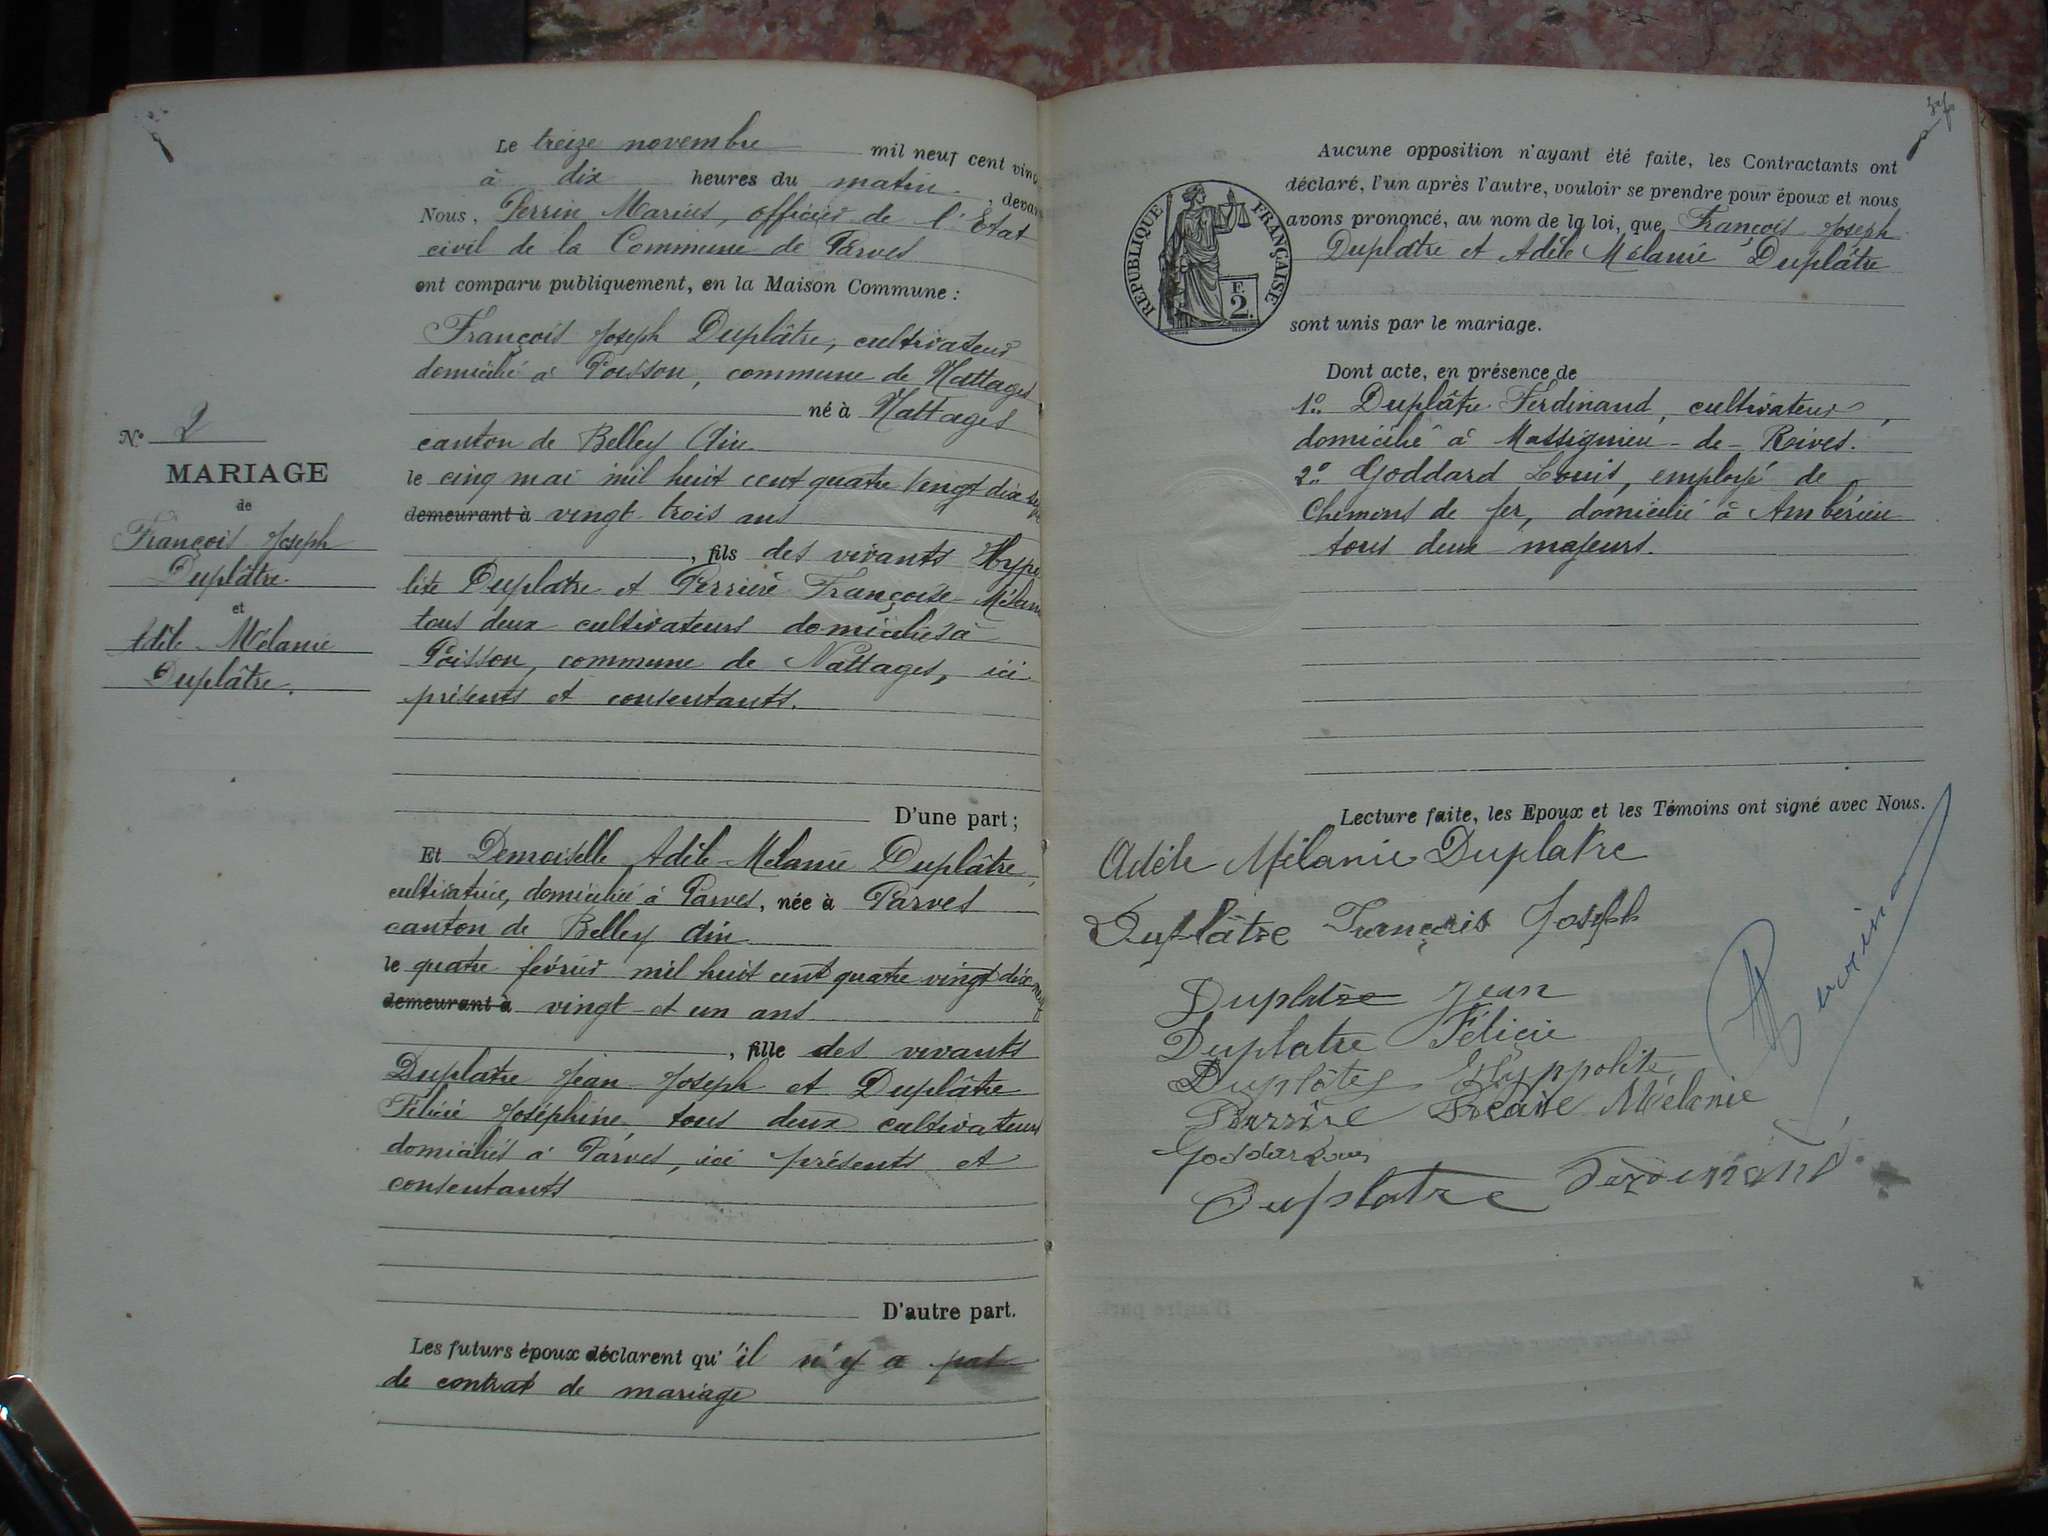 Le treize novembre mil neuf cent vingt
à dix heures du matin, devant
Nous, Perrin Marius, officier de l'Etat
civil de la Commune de Parves
ont comparu publiquement, en la Maison Commune :
François Joseph Duplâtre, cultivateur
domicilié à Poisson, commune de Nattages
né à Nattages
canton de Belley Ain
le cinq mai mil huit cent quatre vingt dix sept
demeurant à vingt trois ans
, fils des vivants Hypo
lite Duplatre et Perrière Françoise Mélanie
tous deux cultivateurs domiciliés à
Poisson, commune de Nattages, ici
présents et consentants.
D'une part ;
N° 2
MARIAGE
de
François Joseph
Duplâtre
et
Adèle Mélanie
Duplâtre.
Et Demoiselle Adèle-Mélanie Duplâtre,
cultivatrice, domiciliée à Parves, née à Parves
canton de Belley Ain
le quatre février mil huit cent quatre vingt dix neuf
demeurant à vingt-et un ans
, fille des vivants
Duplatre Jean Joseph et Duplâtre
Félicie Joséphine, tous deux cultivateurs
domiciliés à Parves, ici présents et
consentants
D'autre part.
Les futurs époux déclarent qu'il n'y a pas
de contrat de mariage
Aucune opposition n'ayant été faite, les Contractants ont
déclaré, l'un après l'autre, vouloir se prendre pour époux et nous
avons prononcé, au nom de la loi, que François Joseph
Duplatre et Adèle Mélanie Duplâtre
sont unis par le mariage.
RÉPUBLIQUE FRANÇAISE
F.
2.
Dont acte, en présence de
1° Duplâtre Ferdinand, cultivateur,
domicilié à Massignieu-de-Rives.
2° Goddard Louis, employé de
Chemins de fer, domicilié à Ambérieu
tous deux majeurs.
Lecture faite, les Epoux et les Témoins ont signé avec Nous.
Adèle Mélanie Duplatre
Duplâtre François Joseph
Duplatre Jean
Duplatre Félicie
Duplâtre Hyppolite
Perrière Mélanie
Goddard Louis
Duplatre Ferdinand
Perrin